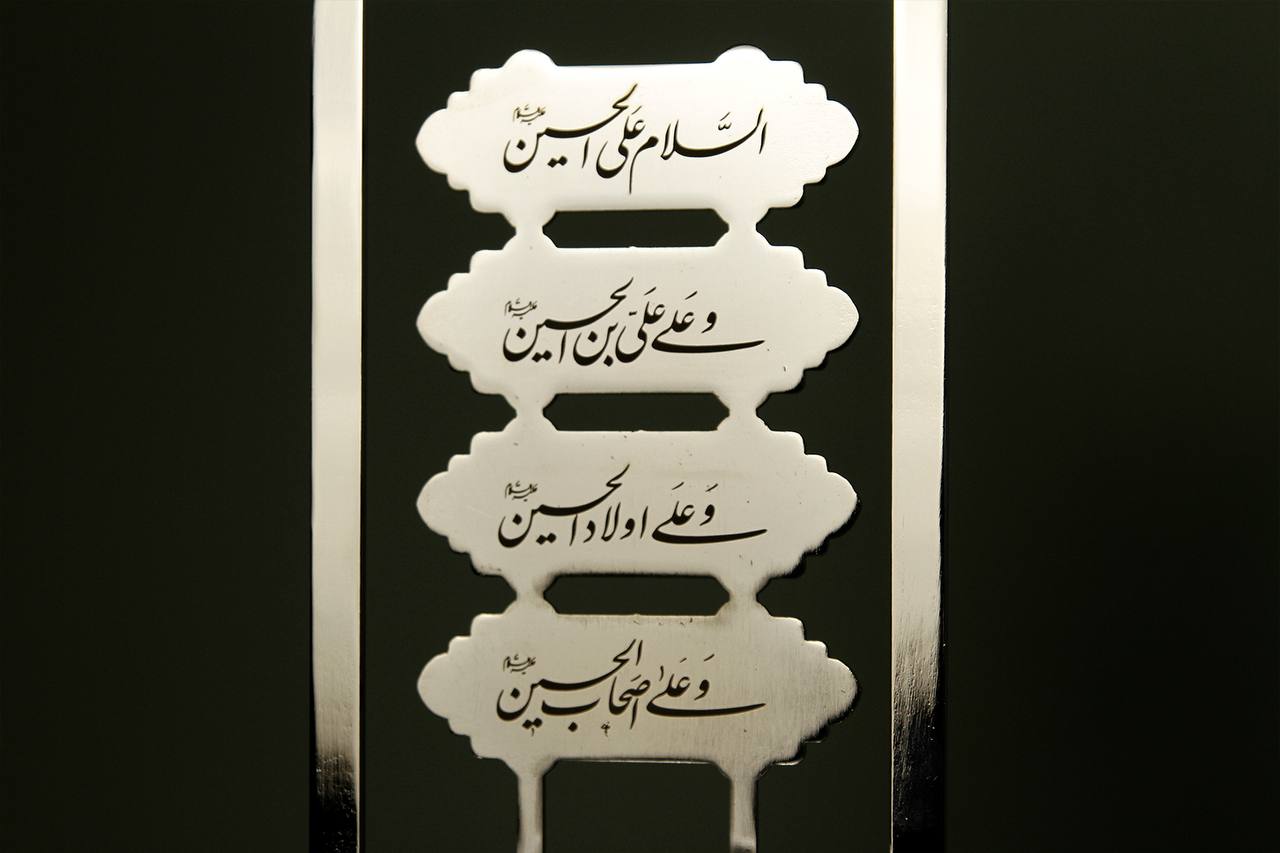 السَّلام عَلَى الحسین علیه السلام
و عَلَے عَلیِّ بن الحسین علیه السلام
وَ عَلَے اولاد الحسین علیه السلام
وَ عَلےٰ اصَحاب الحسین علیه السلام